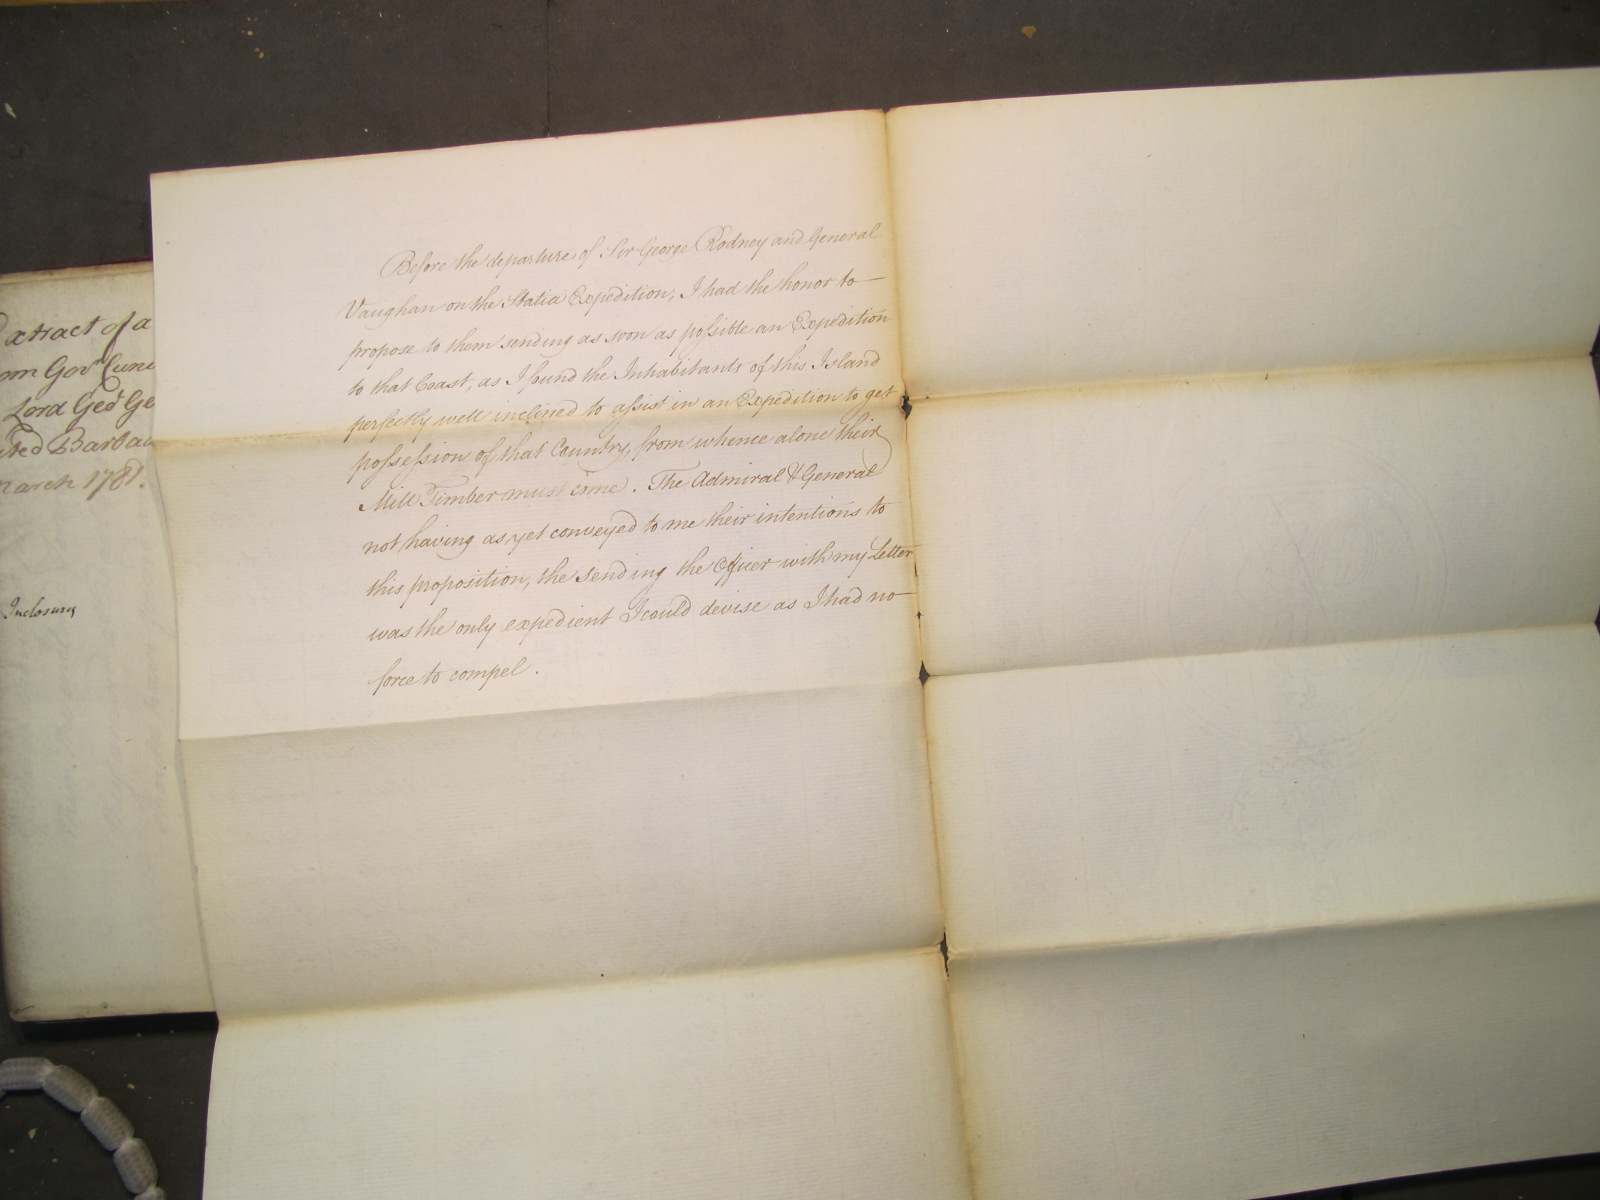 Extract of a
Govr. Cun
Lord Geo. Ge
March 1781.
Inclosure
Before the departure of Sir George Rodney and General
Vaughan on the Statia Expedition, I had the honor to
propose to them sending as soon as possible an Expedition
to that Coast, as I found the Inhabitants of this Island
perfectly well inclined to assist in an Expedition to get
possession of that Country, from whence alone their
Mill Timber must come. The Admiral & General
not having as yet conveyed to me their intentions to
this proposition, the sending the Officer with my Letter
was the only expedient I could devise as I had no
force to compel.